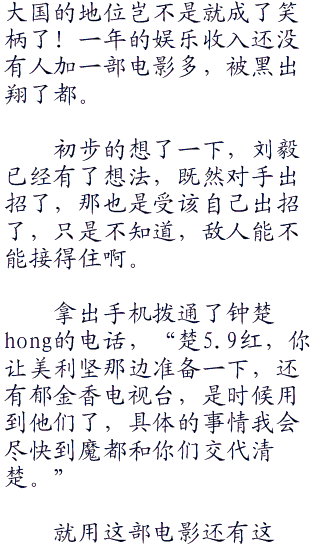 大国的地位岂不是就成了笑
柄了！一年的娱乐收入还没
有人加一部电影多，被黑出
翔了都。
初步的想了一下，刘毅
已经有了想法，既然对手出
招了，那也是受该自己出招
了，只是不知道，敌人能不
能接得住啊。
拿出手机拨通了钟楚
hong的电话，“楚5.9红，你
让美利坚那边准备一下，还
有郁金香电视台，是时候用
到他们了，具体的事情我会
尽快到魔都和你们交代清
楚。”
就用这部电影还有这